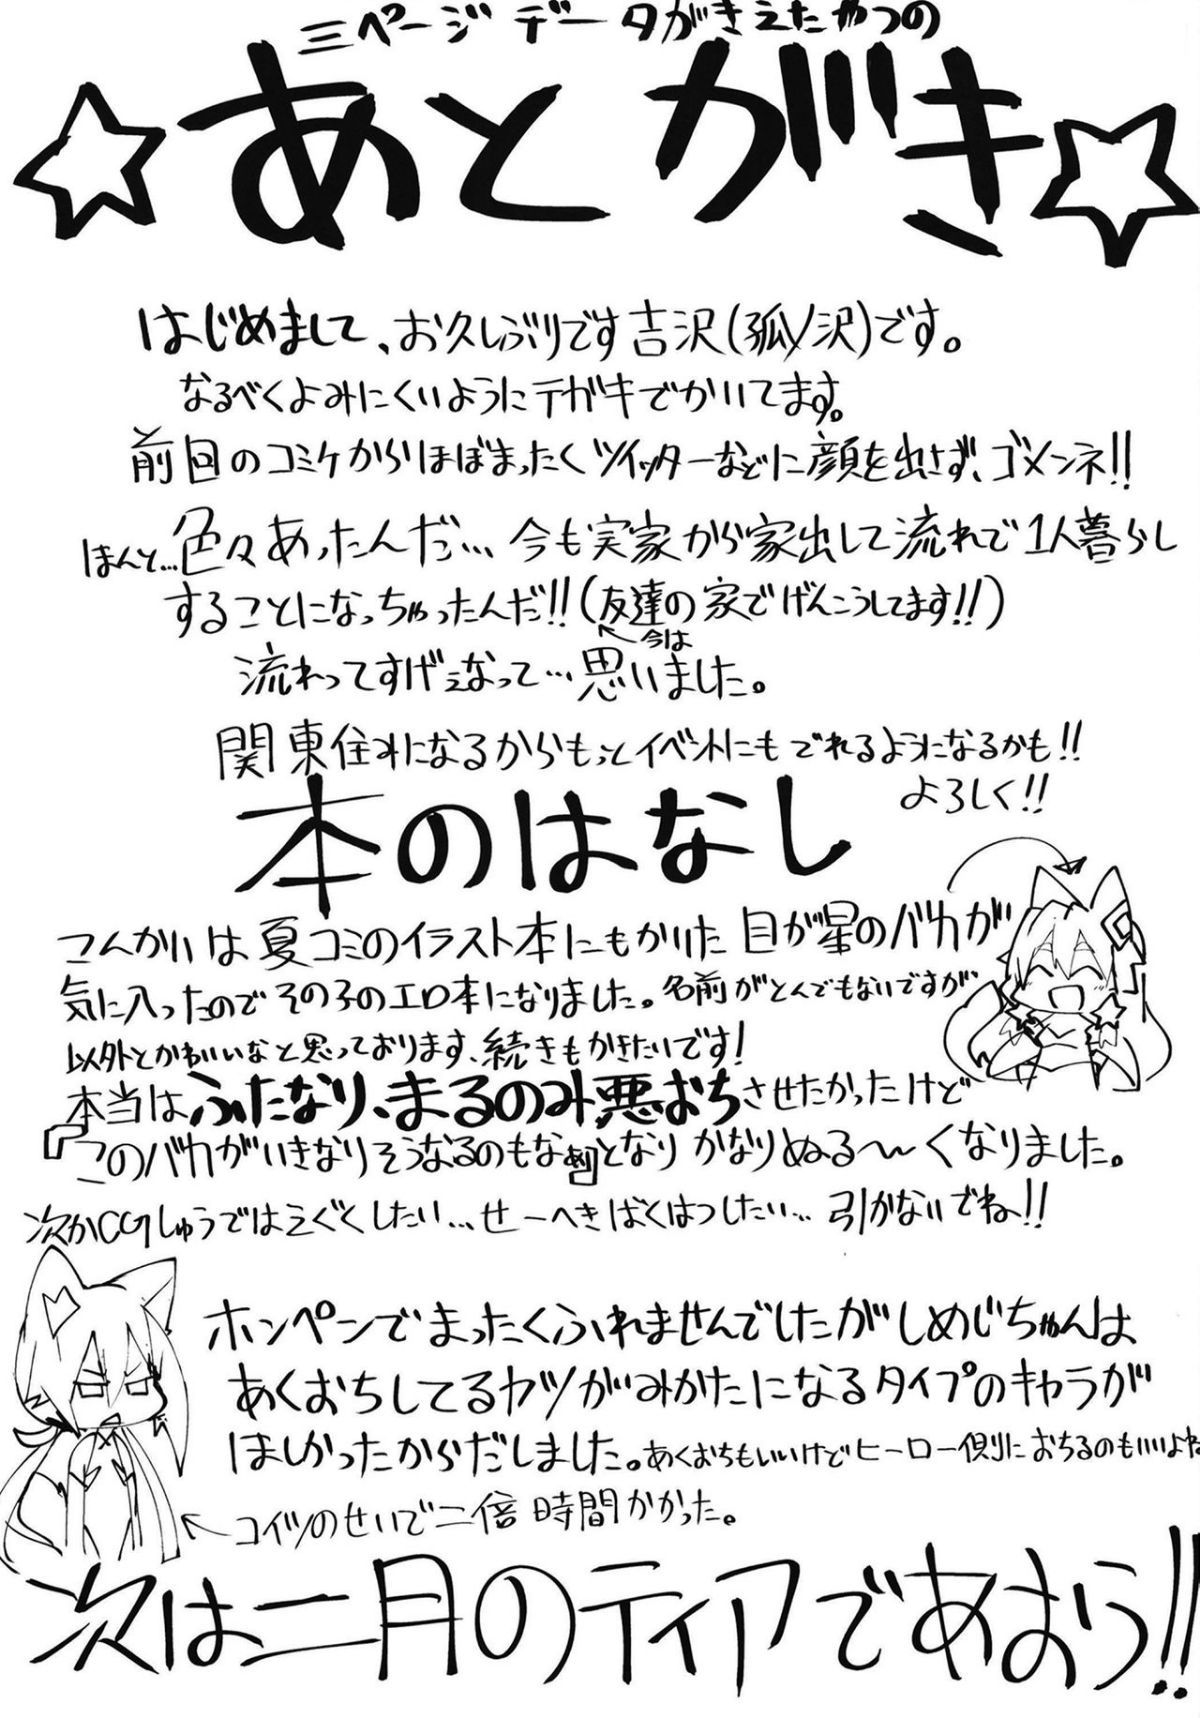 三ページデータがきえたやつの
☆あとがき☆
はじめまして、お久しぶりです吉沢(狐ノ沢)です。
なるべくよみにくいようにテガキでかいてます。
前回のコミケからほぼまったくツイッターなどに顔を出さず、ゴメンネ!!
ほんと…色々あったんだ…今も実家から家出して流れで1人暮らし
することになっちゃったんだ!!(友達の家でげんこうしてます!!)
←今は
流れってすげぇなって…思いました。
関東住みになるからもっとイベントにもでれるようになるかも!!
よろしく!!
本のはなし
こんかいは夏コミのイラスト本にもかいた目が星のバカが
気に入ったのでその子のエロ本になりました。名前がとんでもないですが
以外とかわいいなと思っております、続きもかきたいです!
本当はふたなり、まるのみ悪おちさせたかったけど
『このバカがいきなりそうなるのもなぁ』となりかなりぬる〜くなりました。
次かCGしゅうではえぐくしたい…せーへきばくはつしたい…引かないでね!!
ホンペンでまったくふれませんでしたがしめじちゃんは
あくおちしてるヤツがみかたになるタイプのキャラが
ほしかったからだしました。あくおちもいいけどヒーロー側におちるのもいいよね
←コイツのせいで二倍時間かかった。
次は二月のティアであおう!!